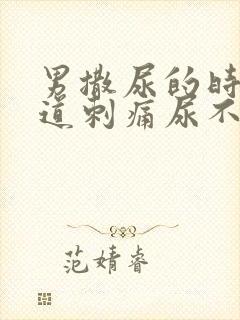 男撒尿的时
道刺痛尿不
范婧睿